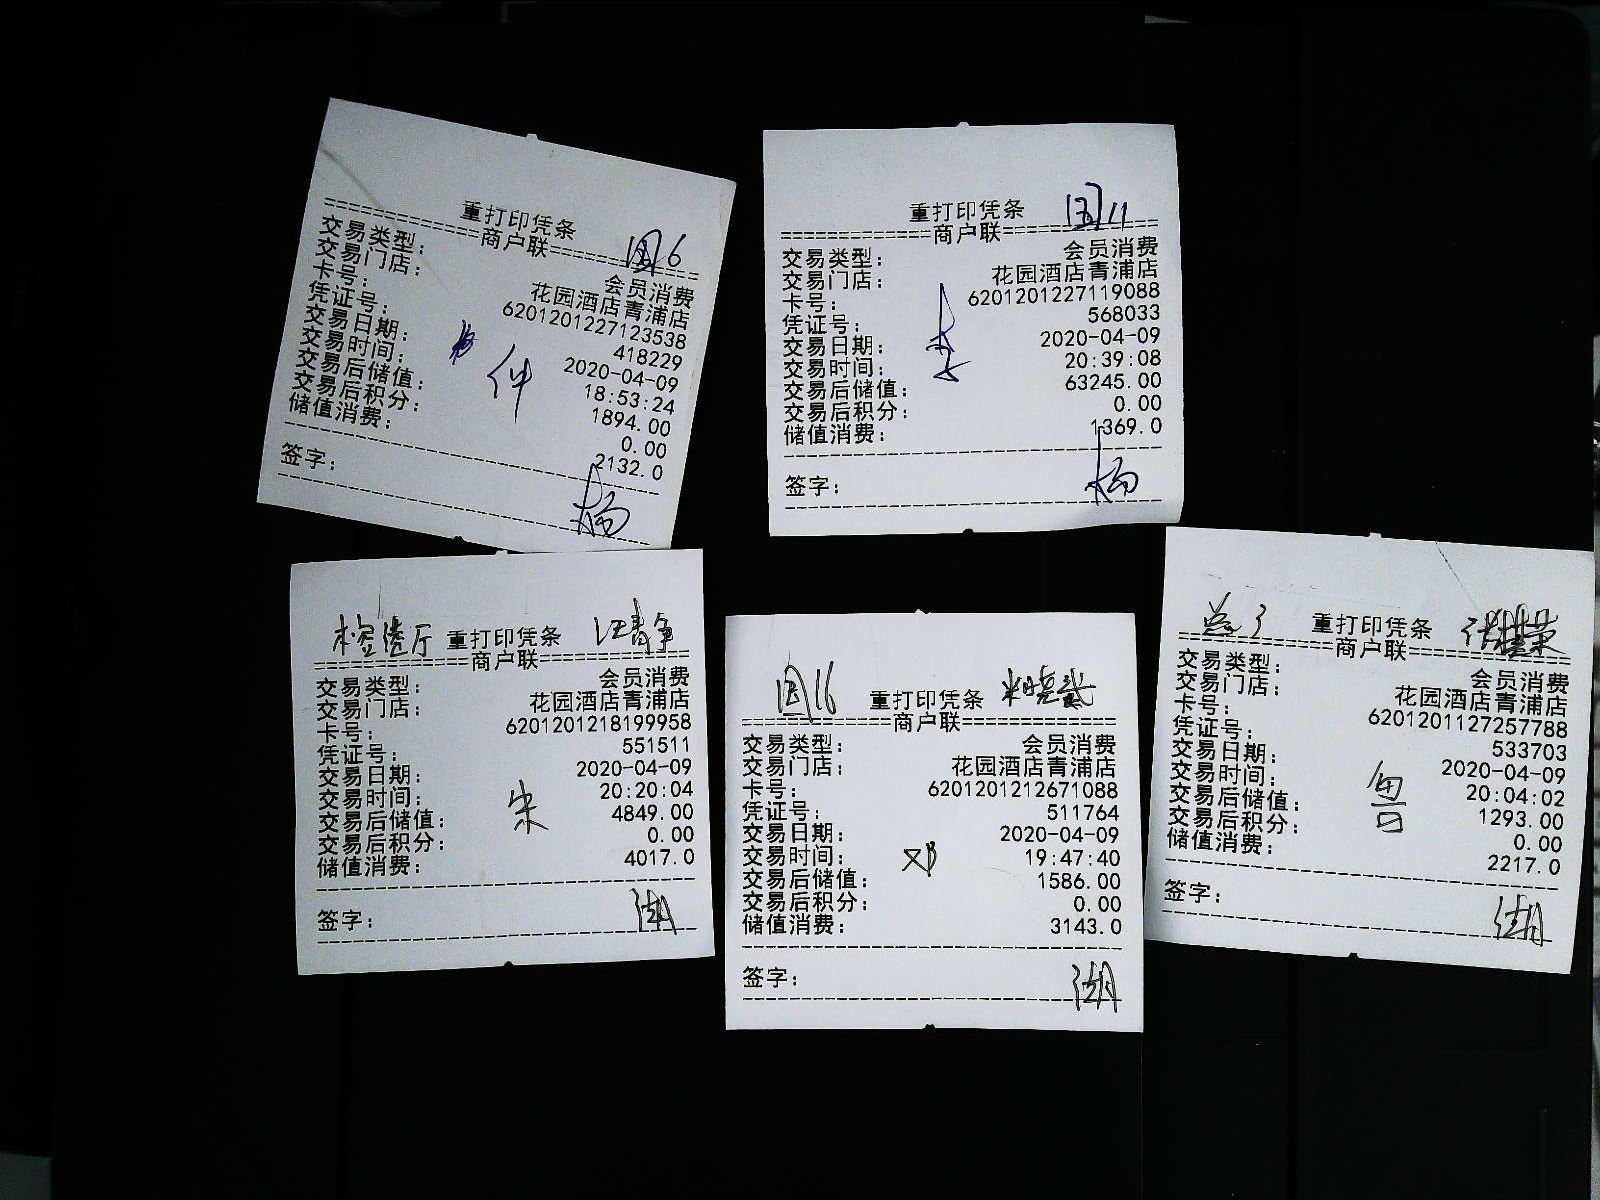 重打印凭条
圆6
==========商户联==========
交易类型: 会员消费
交易门店: 花园酒店青浦店
卡号: 6201201227123538
凭证号: 418229
交易日期: 2020-04-09
交易时间: 18:53:24
交易后储值: 1894.00
交易后积分: 0.00
储值消费: 2132.0
签字: 杨
重打印凭条
圆11
==========商户联==========
交易类型: 会员消费
交易门店: 花园酒店青浦店
卡号: 6201201227119088
凭证号: 568033
交易日期: 2020-04-09
交易时间: 20:39:08
交易后储值: 63245.00
交易后积分: 0.00
储值消费: 1369.0
李
签字: 杨
厅 重打印凭条 汪青争
==========商户联==========
交易类型: 会员消费
交易门店: 花园酒店青浦店
卡号: 6201201218199958
凭证号: 551511
交易日期: 2020-04-09
交易时间: 20:20:04
交易后储值: 4849.00
交易后积分: 0.00
储值消费: 4017.0
宋
签字: 湖
圆16 重打印凭条
==========商户联==========
交易类型: 会员消费
交易门店: 花园酒店青浦店
卡号: 6201201212671088
凭证号: 511764
交易日期: 2020-04-09
交易时间: 19:47:40
交易后储值: 1586.00
交易后积分: 0.00
储值消费: 3143.0
邓
签字: 湖
重打印凭条
==========商户联==========
交易类型: 会员消费
交易门店: 花园酒店青浦店
卡号: 6201201127257788
凭证号: 533703
交易日期: 2020-04-09
交易时间: 20:04:02
交易后储值: 1293.00
交易后积分: 0.00
储值消费: 2217.0
鲁
签字: 湖